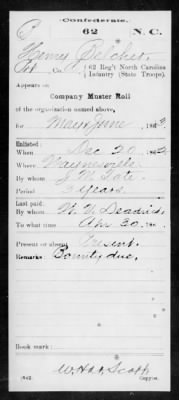 Confederate.
62 N. C.
Pvt, Co. 62 Reg't North Carolina
Infantry (State Troops).
Appears on
Company Muster Roll
of the organization named above,
for May & June, 186
Enlisted:
When Dec 20, 186
Where Waynesville
By whom
Period 3 years
Last paid:
By whom
To what time Apr 30, 186
Present or absent Present
Remarks: Bounty due.
Book mark:
(642) Copyist.